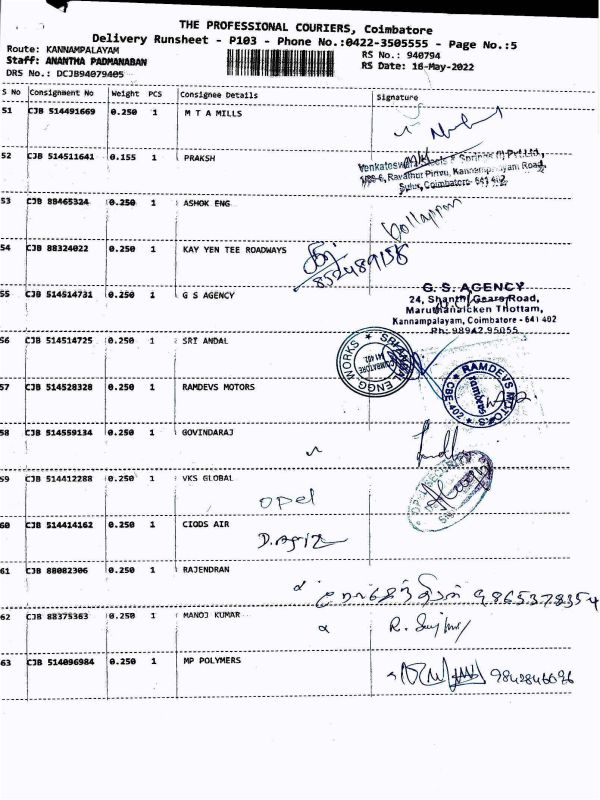 THE PROFESSIONAL COURIERS, Coimbatore
Delivery Runsheet - P103 - Phone No.:0422-3505555 - Page No.:5
Route: KANNAMPALAYAM RS No.: 940794
Staff: ANANTHA PADMANABAN RS Date: 16-May-2022
DRS No.: DCJB94079405
S No Consignment No Weight PCS Consignee Details Signature
51 CJB 514491669 0.250 1 M T A MILLS
52 CJB 514511641 0.155 1 PRAKSH
Venkateswara Steels & Springs (I) Pvt.Ltd.,
Ravathur Pirivu, Kannampalayam Road,
Sulur, Coimbatore- 641 402
53 CJB 88465324 0.250 1 ASHOK ENG
54 CJB 88324022 0.250 1 KAY YEN TEE ROADWAYS
55 CJB 514514731 0.250 1 G S AGENCY
G. S. AGENCY
24, Shanthi Gears Road,
Maruthanaicken Thottam,
Kannampalayam, Coimbatore - 641 402
Ph: 98942 95055
56 CJB 514514725 0.250 1 SRI ANDAL
SRI ANDAL ENGG WORKS
COIMBATORE
641 402
57 CJB 514528328 0.250 1 RAMDEVS MOTORS
RAMDEVS MOTORS
CBE-402
58 CJB 514559134 0.250 1 GOVINDARAJ
59 CJB 514412288 0.250 1 VKS GLOBAL
opel
SECURITY
60 CJB 514414162 0.250 1 CIODS AIR
61 CJB 88082306 0.250 1 RAJENDRAN
9865378354
62 CJB 88375363 0.250 1 MANOJ KUMAR
63 CJB 514096984 0.250 1 MP POLYMERS
9842846696